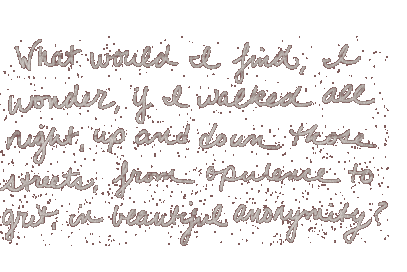 What would I find, I
wonder, if I walked all
night, up and down those
streets, from opulence to
grit, in beautiful anonymity?